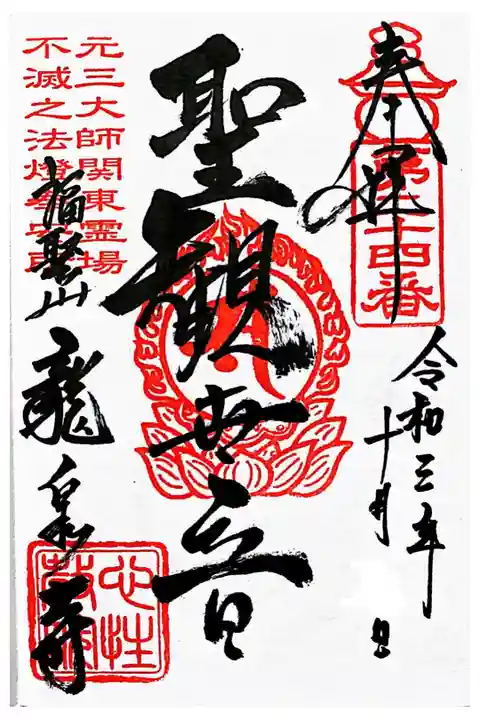 奉拝
第十四番
令和三年
十月 日
聖観世音
元三大師関東霊場
不滅之法燈奉安所
福聚山 龍泉寺
心性